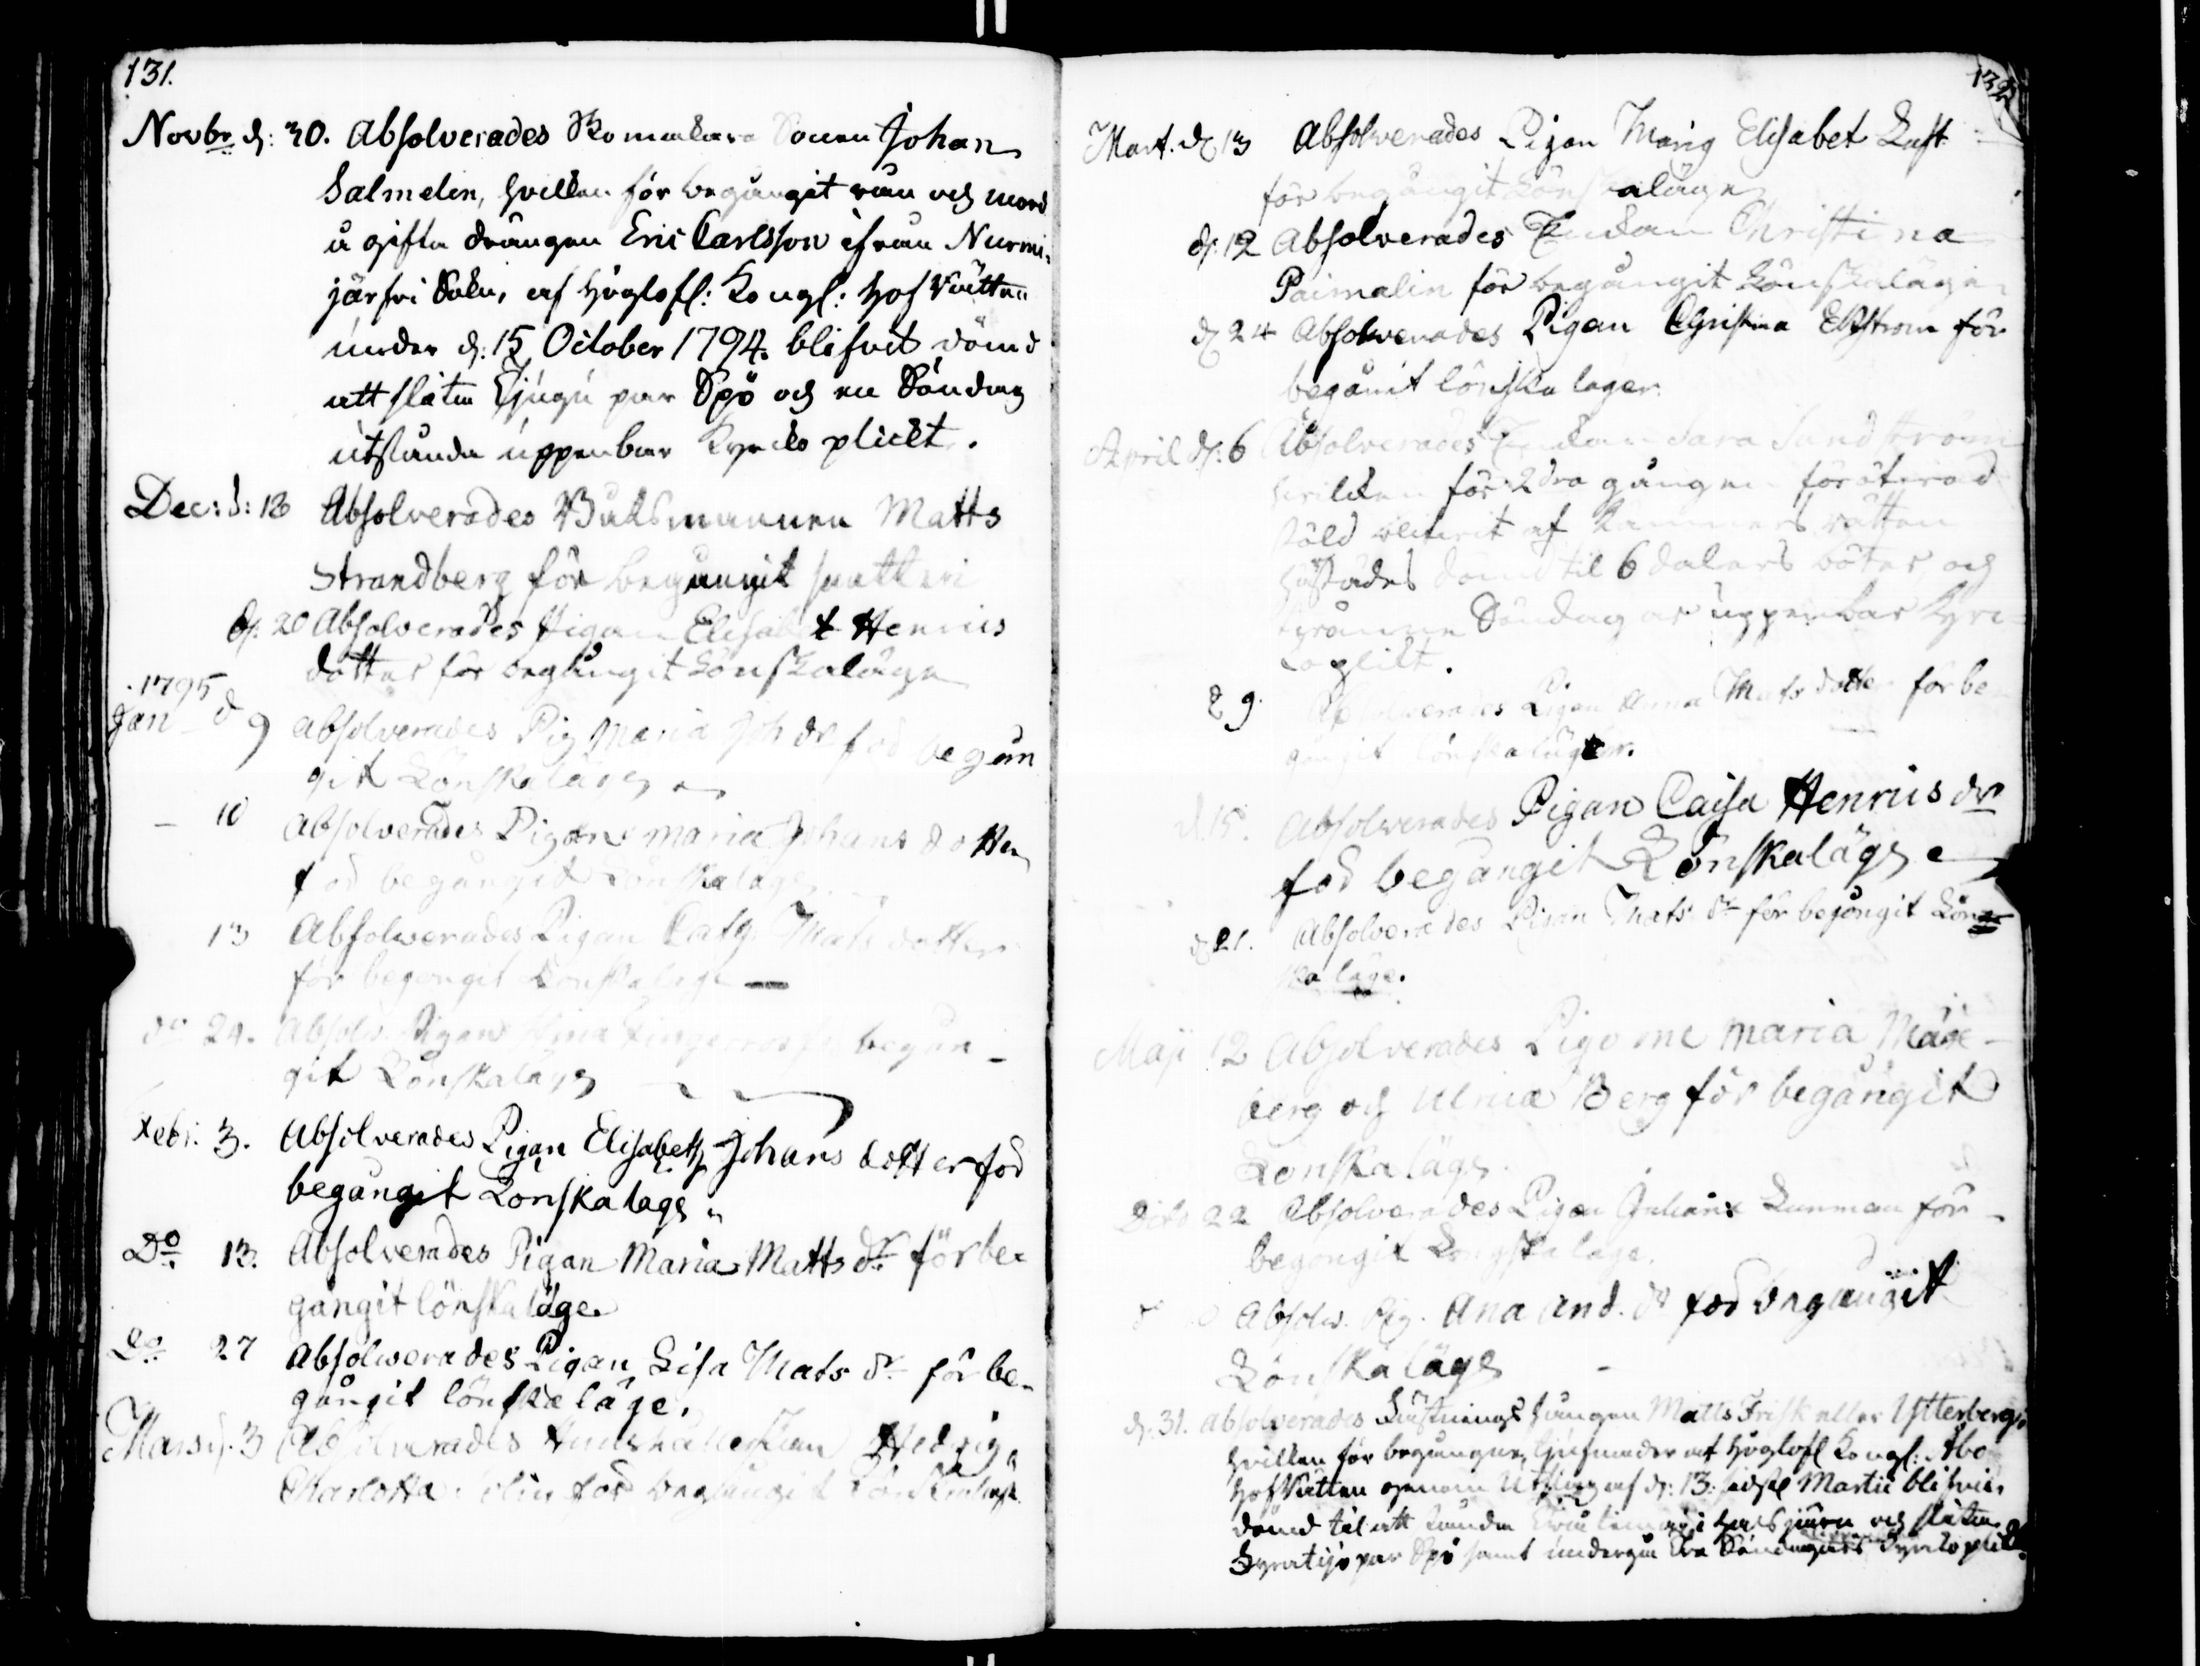 131.
Novbr d: 30. Absolverades Skomakare Sonen Johan
Salmelin, hvilken för begångit rån och mord
å gifta drängen Eric Carlsson ifrån Nurmi-
järfvi Sokn, af Höglofl: Kongl: Hof Rätten
under d: 15 October 1794. blifvit dömd
att slita Tjugu par Spö och en Söndag
utstånda uppenbar Kyrko plickt.
Dec: d: 13 Absolverades Båtsmannen Matts
Strandberg för begångit
d: 20 Absolverades Pigan Elisabet Henrics
dotter för begångit Lönskaläge
1795
Jan d 9 Absolverades Pig Maria Joh dr för begån
git Lönskaläge
- 10 Absolverades Pigan Maria Johans dotter
för begångit Lönskaläge
13 Absolverades Pigan Mats dotter
för begongit Lönskaläge
do 24. Absolv. Pigan begån-
git Lönskaläge
Febr. 3. Absolverades Pigan Elisabeth Johans dotter för
begångit Lönskaläge
Do 13. Absolverades Pigan Maria Matts dr för be-
gångit lönskaläge.
Do 27 Absolverades Pigan Lisa Mats dr för be-
gångit lönskaläge.
Mars d. 3 Absolverades Hedvig
Charlotta för begångit Lönskaläge
132
Mart. d 13 Absolverades Pigan Maria Elisabet
för begångit Lönskaläge
d: 12 Absolverades Enkan Christina
Paimalin för begångit Lönskaläge
d 24 Absolverades Pigan Christina Ekstrom för
begånit lönska lager.
April d: 6 Absolverades Enkan Sara Sandström
hvilken för 2dra gången föröfvad
stöld blifvit af Kämners rätten
härstädes dömd til 6 dalers böter och
Söndagar uppenbar Kyr-
koplikt.
d 9. Absolverades Pigan Anna Mats dotter för be-
gångit lönskaläger.
d. 15. Absolverades Pigan Caisa Henrics dr
för begångit Lönskaläge
d 21. Absolverades Pigan Mats dr för begångit Lön-
skaläge.
Maji 12 Absolverades Pigorne Maria
berg och Ulrica Berg för begångit
Lönskaläge.
Dito 22 Absolverades Pigan för
begongit Lönskaläge.
Absolv. Pig. Ana And. dr för begångit
Lönskaläge
d: 31. Absolverades Fästnings fången Matts Frisk eller Ytterberg,
hvilken för begångne tjufnader af Höglofl Kongl: Åbo
Hof Rätten genom Utslag af d: 13. Martii blifvit
dömd til att stunda timar i Halsjärn och slita
Fyratijo par Spö samt undergå Söndagars Kyrkoplikt.